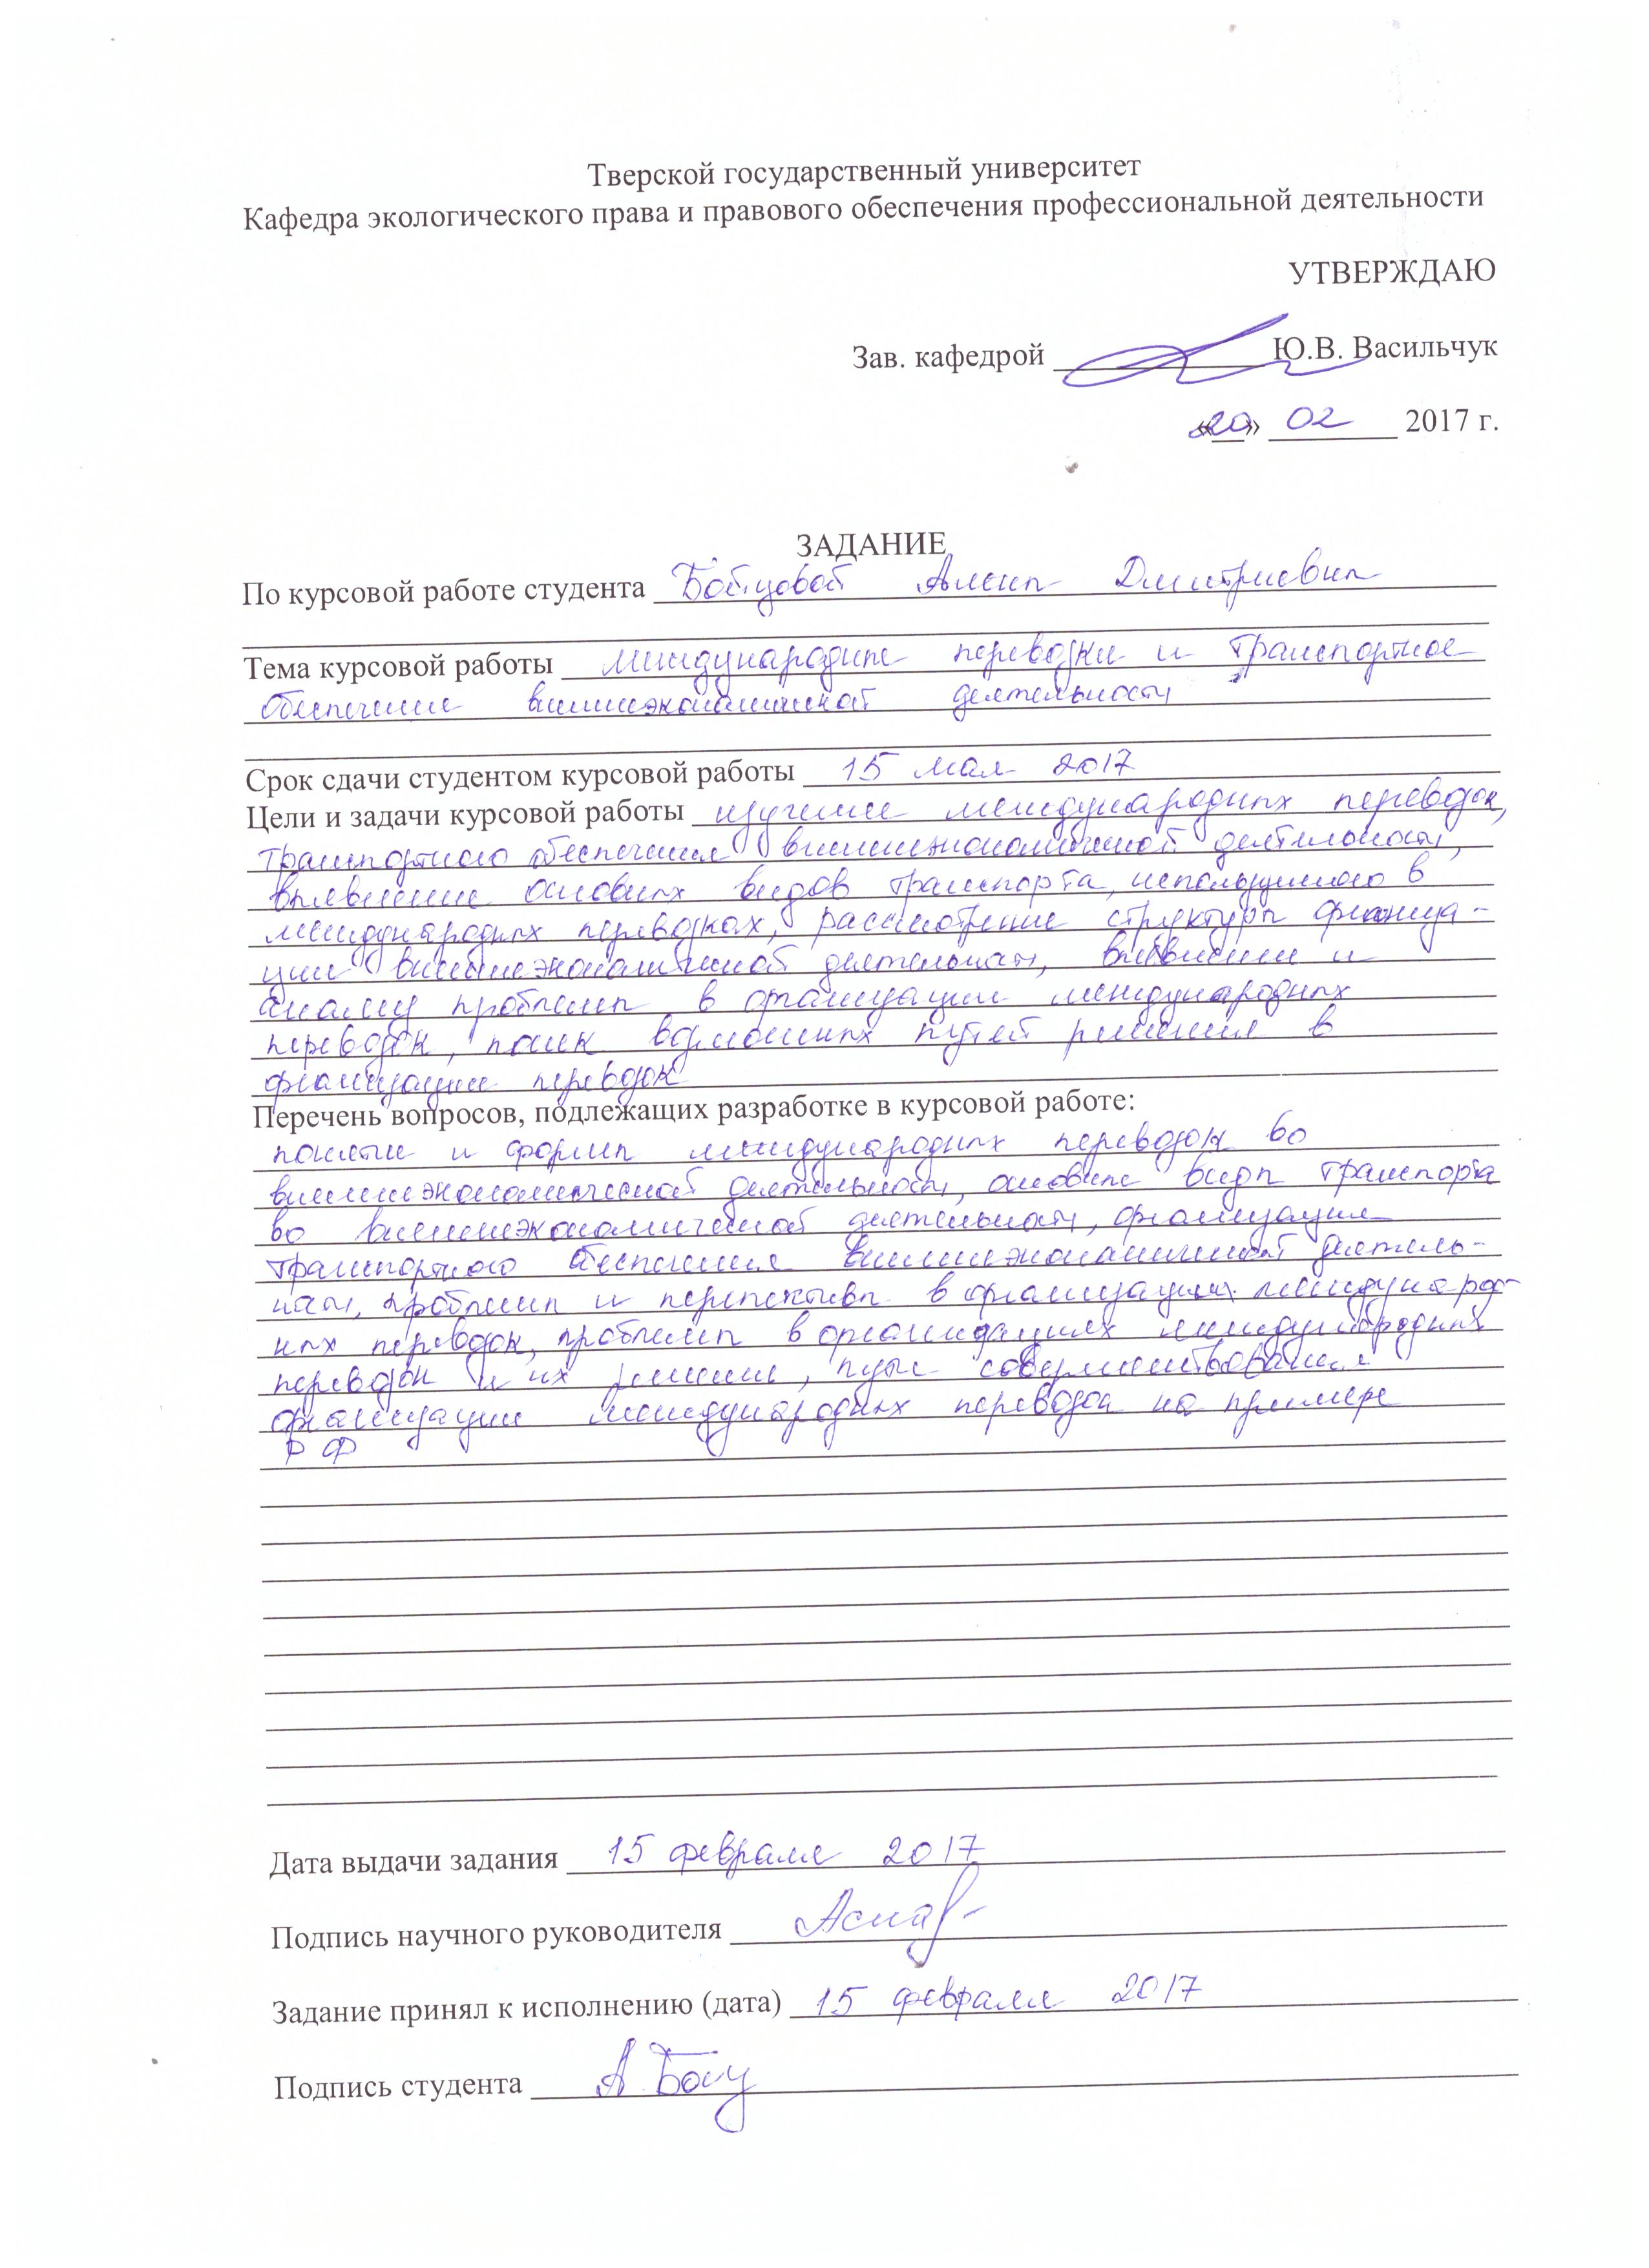 Тверской государственный университет
Кафедра экологического права и правового обеспечения профессиональной деятельности
УТВЕРЖДАЮ
Зав. кафедрой Ю.В. Васильчук
«20» 02 2017 г.
ЗАДАНИЕ
По курсовой работе студента Бойцовой Алены Дмитриевны
Тема курсовой работы международные перевозки и транспортное
обеспечение внешнеэкономической деятельности
Срок сдачи студентом курсовой работы 15 мая 2017
Цели и задачи курсовой работы изучение международных перевозок,
транспортного обеспечения внешнеэкономической деятельности,
выявление основных видов транспорта, используемого в
международных перевозках, рассмотрение структуры организа-
ции внешнеэкономической деятельности, выявление и
анализ проблемы в организации международных
перевозок, поиск возможных путей решения в
организации перевозок
Перечень вопросов, подлежащих разработке в курсовой работе:
понятие и формы международных перевозок во
внешнеэкономической деятельности, основные виды транспорта
во внешнеэкономической деятельности, организация
транспортного обеспечения внешнеэкономической деятель-
ности, проблемы и перспективы в организациях международ-
ных перевозок, проблемы в организациях международных
перевозок и их решение, пути совершенствования
организации международных перевозок на примере
РФ
Дата выдачи задания 15 февраля 2017
Подпись научного руководителя
Задание принял к исполнению (дата) 15 февраля 2017
Подпись студента А Бойц